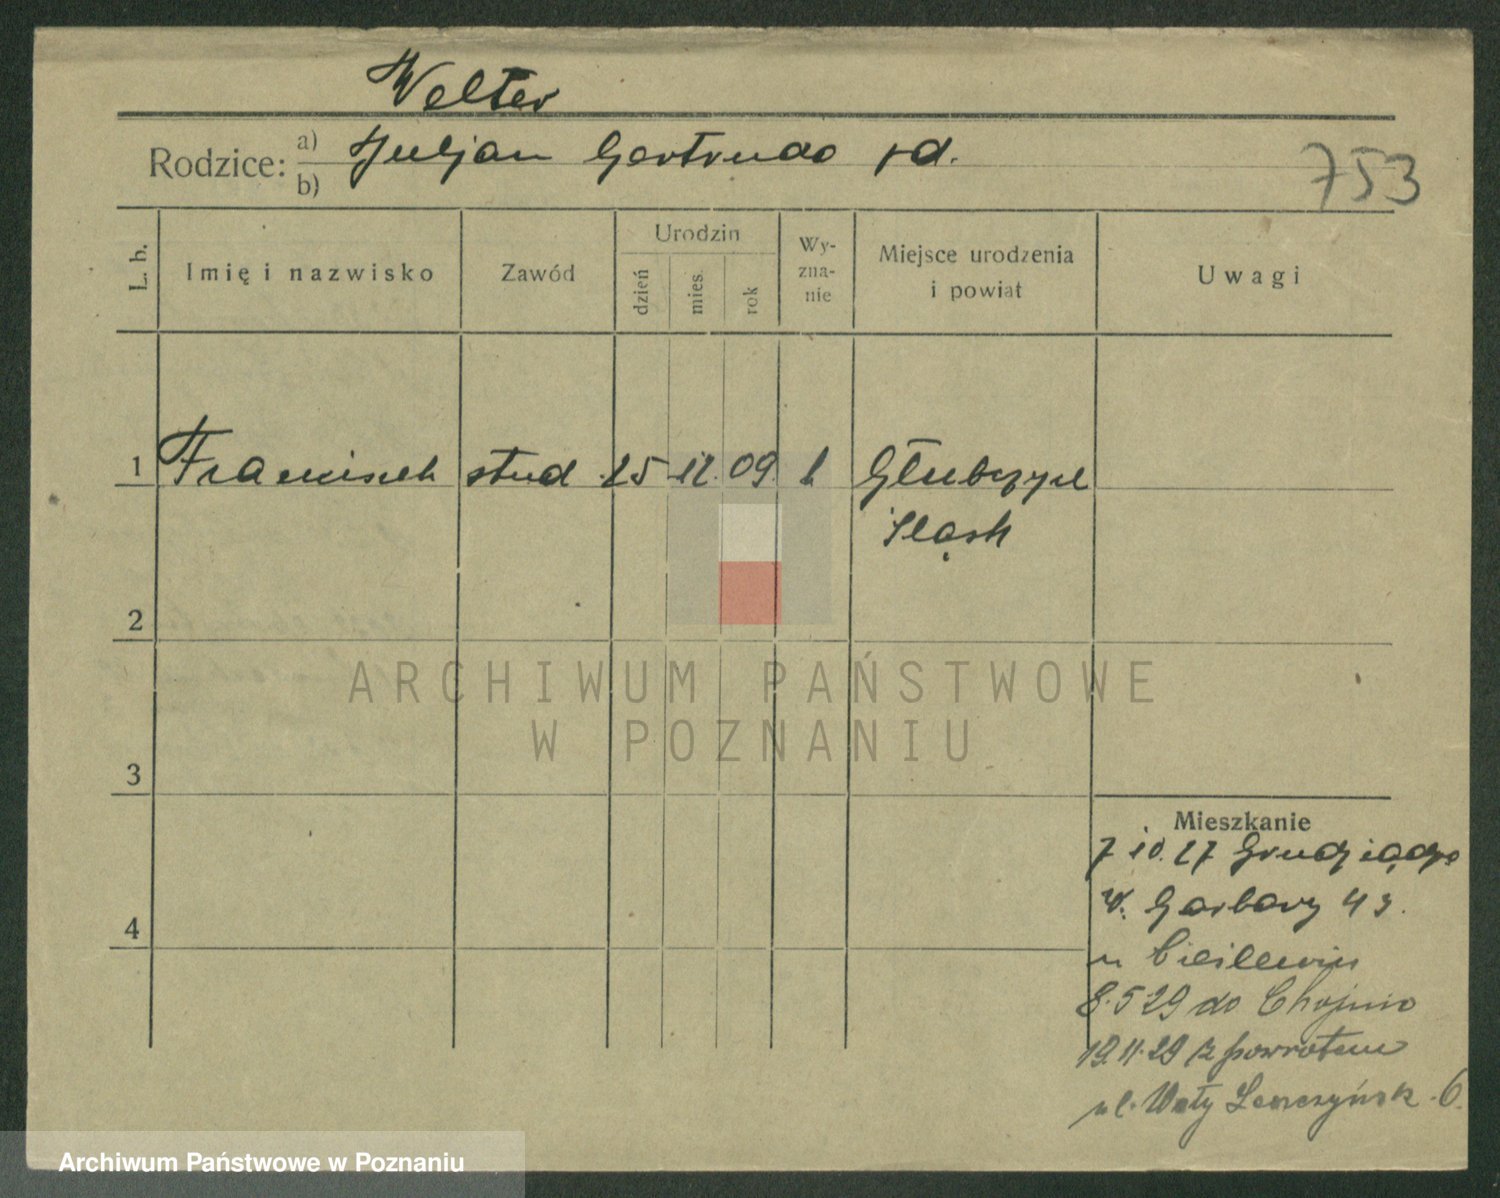 Welter
Rodzice: a) Juljan Gertruda rd.
b)
753
L. b.
Imię i nazwisko
Zawód
Urodzin
dzień
mies.
rok
Wy-
zna-
nie
Miejsce urodzenia
i powiat
Uwagi
1 Franciszek stud 09
Śląsk
2
3
4
ARCHIWUM PAŃSTWOWE
W POZNANIU
Mieszkanie
7 10. 27 Grudziądz
w. Garbary 43.
u
8.5 29 do Chojnic
19.11.29 z powrotem
ul. Wały Leszczyńsk. 6.
Archiwum Państwowe w Poznaniu